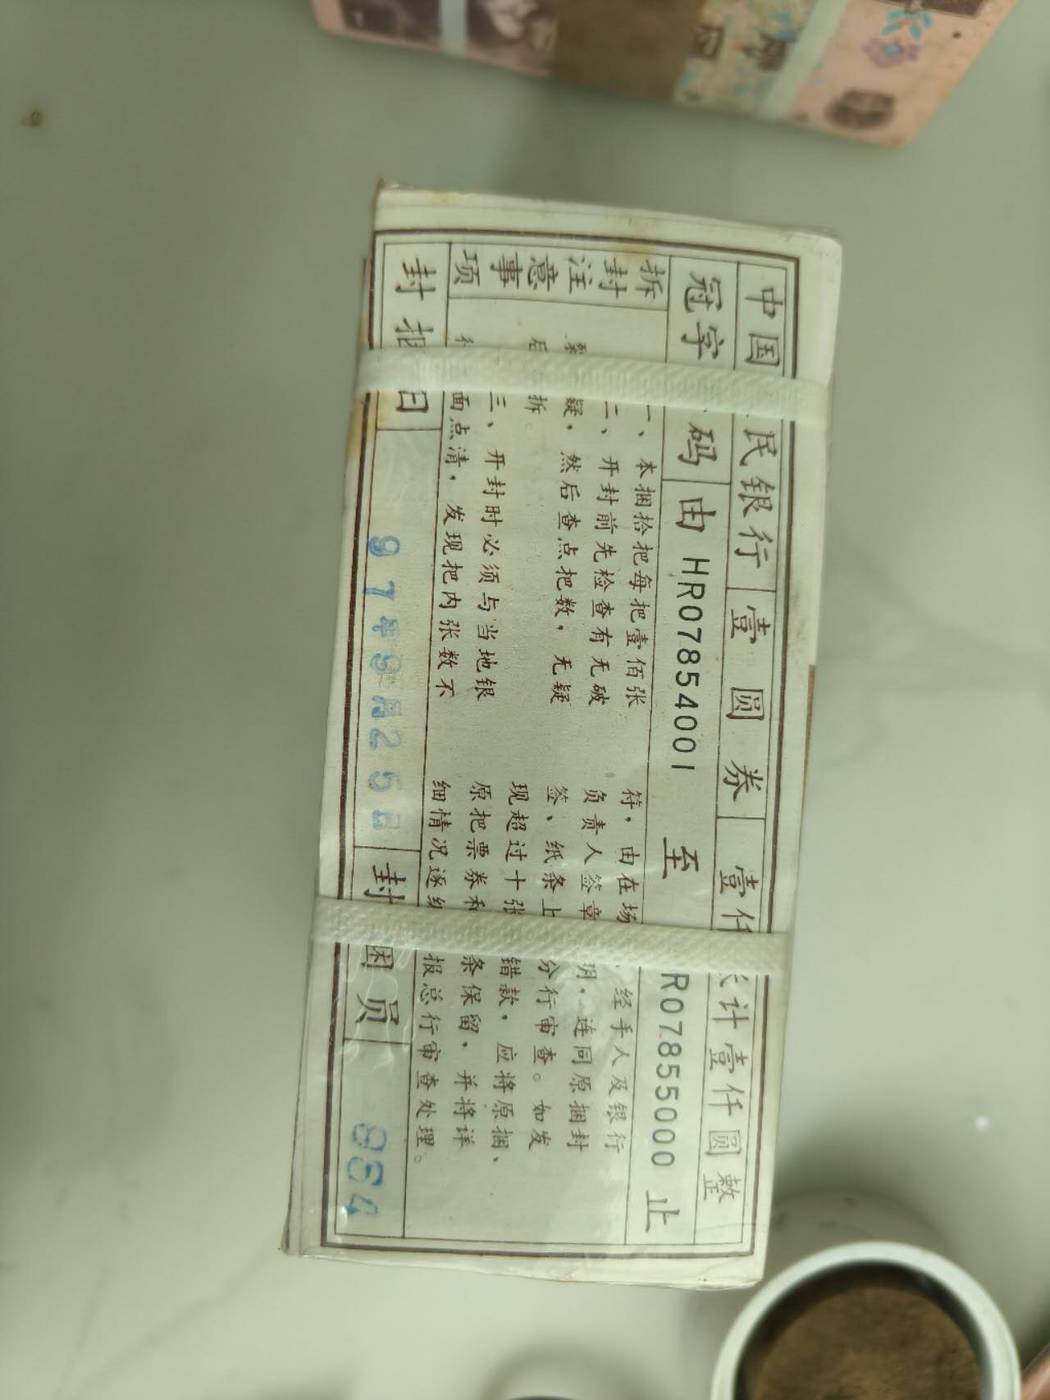 中国 民银行 壹圆券 壹仟 计壹仟圆整
冠字 码 由 HR07854001 至 R07855000 止
拆封注意事项
一、本捆拾把每把壹佰张
二、开封前先检查有无破
疑，然后查点把数，无疑
后 拆。
三、开封时必须与当地银
面点清，发现把内张数不
符，由在场 经手人及银行
负责人签章 明，连同原捆封
签、纸条上 分行审查。如发
现超过十张 错款，应将原捆、
原把票券和 条保留，并将详
细情况逐级 报总行审查处理。
封捆日 97年9月25日 封捆员 884